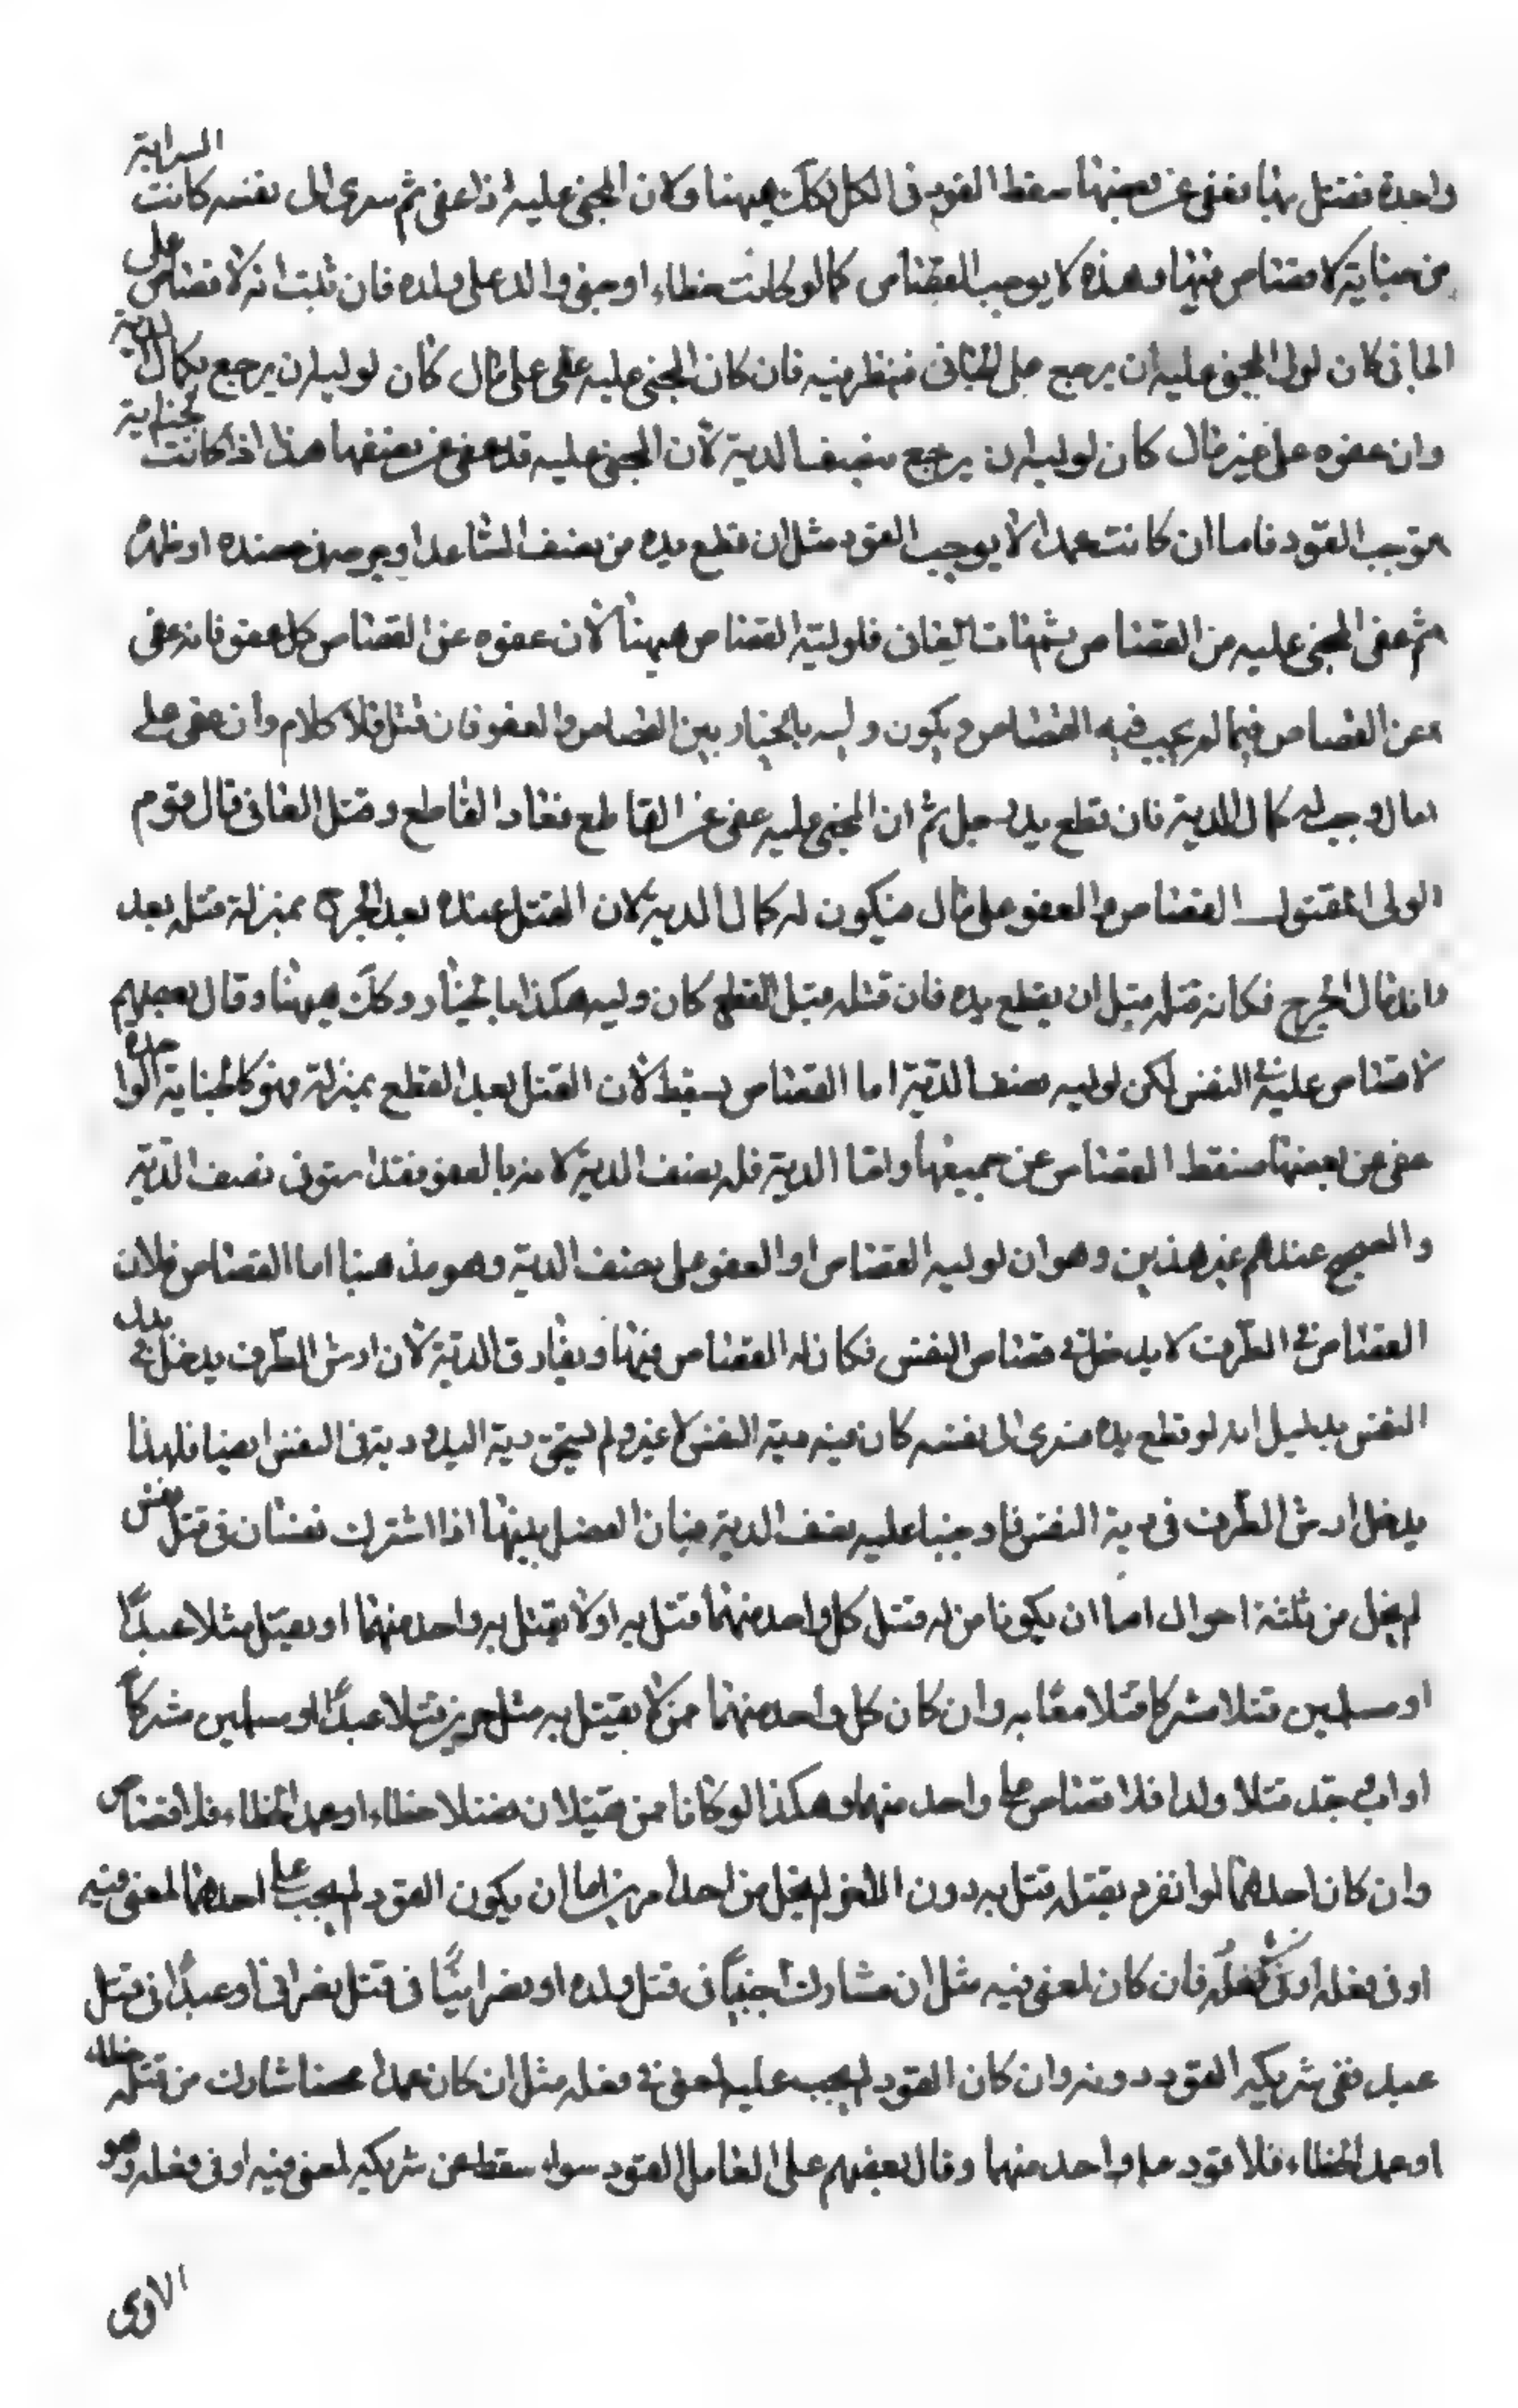 واحدة فقتل بها فعفى عن بعضها سقط القود فى الكل لكك ههنا ولان المجنى عليه اذا عفى ثم سرى الى نفسه كانت السراية
من جناية لا قصاص فيها وهذه لا يوجب القصاص كما لو كانت خطاء او جنى والد على ولده فان ثبت انه لا قصاص على
الجانى كان لولى المجنى عليه ان يرجع على الجانى فينظر فيه فان كان المجنى عليه عفى على مال كان لوليه ان يرجع بكمال الدية
وان عفوه على غير مال كان لوليه ان يرجع بنصف الدية لان المجنى عليه قد عفى عن نصفها هذا اذا كانت الجناية
توجب القود فاما ان كانت عمدا لا يوجب القود مثل ان قطع يده من نصف الساعد او جرحه فى عضده او ظهره
ثم عفى المجنى عليه من القصاص ثم مات الغان فلوليه القصاص ههنا لان عفوه عن القصاص كل عفو فانه عفى
عن القصاص فيما لم يجب فيه القصاص ويكون وليه بالخيار بين القصاص والعفو فان قتل فلا كلام وان عفى على
مال وجب له كمال الدية فان قطع يد رجل ثم ان المجنى عليه عفى عن القاطع فعاد القاطع وقتل العافى قال قوم
الولى المقتول القصاص والعفو على مال فيكون له كمال الدية لان القتل عنده بعد الجرح بمنزلة قتله بعد
اندمال الجرح فكانه قتله قبل ان يقطع يده فان قتله قبل القطع كان وليه هكذا بالخيار وكك ههنا وقال بعضهم
لا قصاص عليه فى النفس لكن لوليه نصف الدية اما القصاص يسقط لان القتل بعد القطع بمنزلة فهو كالجناية الواحدة
عفى عن بعضها فسقط القصاص عن جميعها واما الدية فله نصف الدية لانه بالعفو فقد استوفى نصف الدية
والصحيح عندهم غير هذين وهو ان لوليه القصاص او العفو على نصف الدية وهو مذهبنا اما القصاص فلان
القصاص فى الطرف لا يدخل فى قصاص النفس فكان له القصاص فيها ويفارق الدية لان ارش الطرف يدخل فى بدل
النفس بدليل انه لو قطع يده فسرى الى نفسه كان فيه دية النفس لا غير ولم يستحق دية اليد ودية فى النفس ايضا فلهذا
يدخل ارش الطرف فى دية النفس فاوجبنا عليه نصف الدية فبان الفصل بينهما اذا اشترك نفسان فى قتل نفس
لم يخل من ثلثة احوال اما ان يكونا من له قتل كل واحد منهما قتل به او لا يقتل به واحد منهما او يقتل مثلا عبدًا
او مسلمين قتلا مشركا قتلا معًا به وان كان كل واحد منهما ممن لا يقتل به مثل حرين قتلا عبدًا او مسلمين مشركاً
او اب وجد قتلا ولدا فلا قصاص على واحد منهما وهكذا لو كانا ممن يقتلان فقتلا خطاء او عمد الخطاء فلا قصاص
وان كان احدهما لو انفرد بقتله قتل به دون الاخر لم يخل من احد امرين اما ان يكون القود لم يجب على احدهما لمعنى فيه
او فى فعله او فى فعله فان كان لمعنى فيه مثل ان شارك اجنبيًا فى قتل ولده او نصرانيًا فى قتل نصرانى او عبدًا فى قتل
عبد ففى شريكه القود دونه وان كان القود لم يجب عليه لمعنى فى فعله مثل ان كان عمدا محضا شارك من قتله خطاء
او عمد الخطاء فلا قود على واحد منهما وقال بعضهم على العامد القود سواء سقط عن شريكه لمعنى فيه او فى فعله وهو
الاقوى